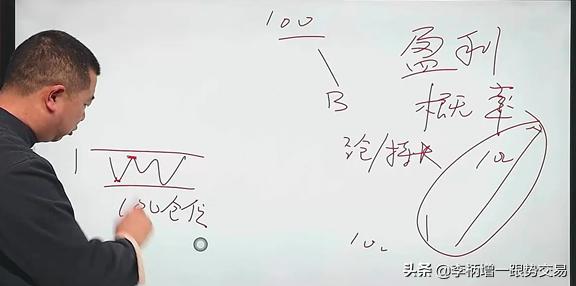 100
盈利
B
概率
论/持
10
1
100仓位
10
头条 @李柄增一跟势交易